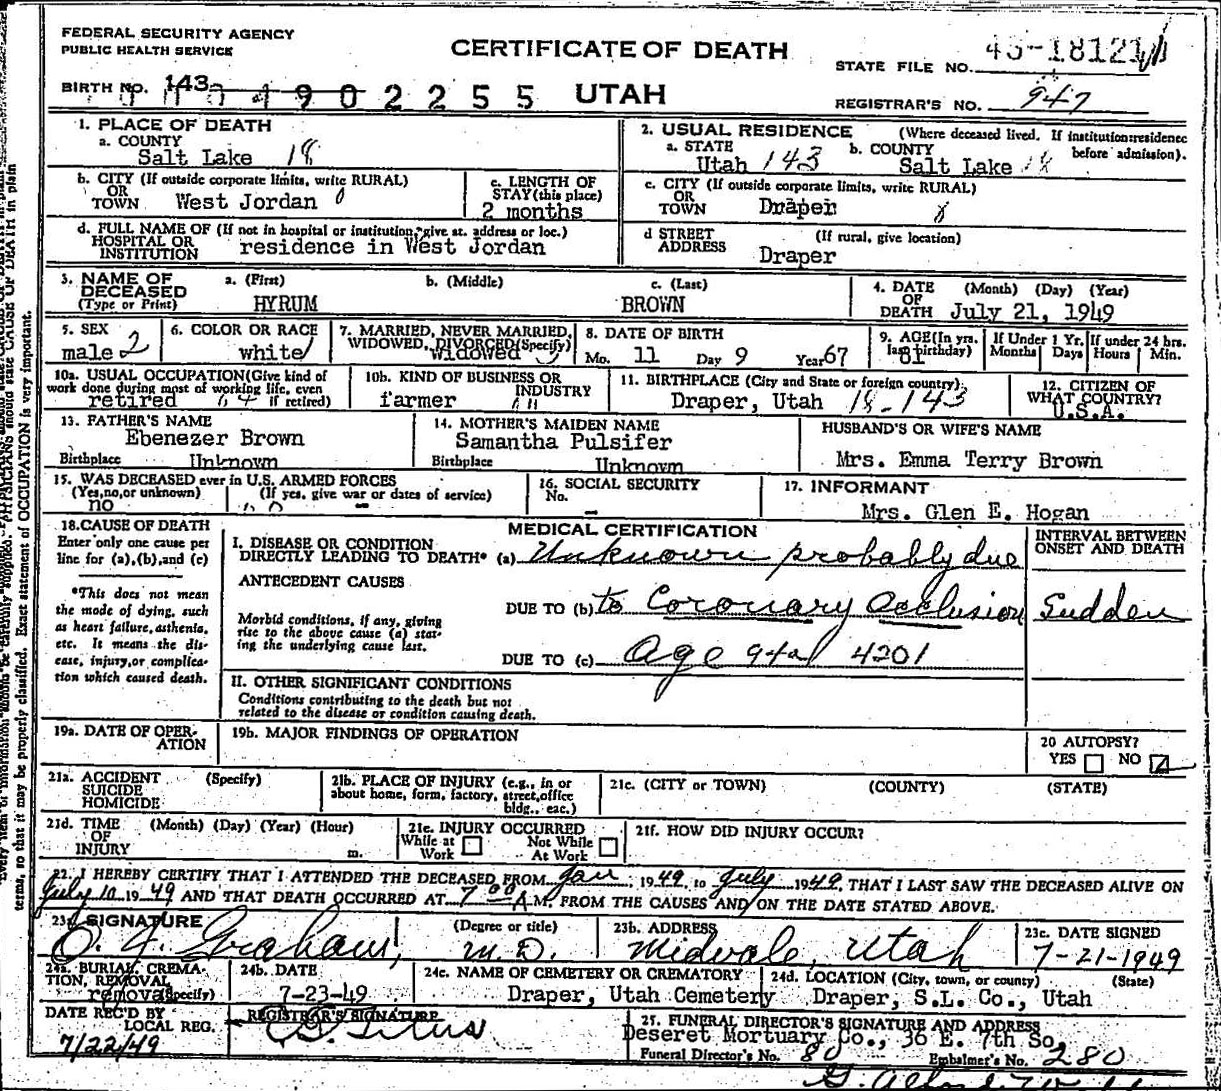 FEDERAL SECURITY AGENCY
PUBLIC HEALTH SERVICE
CERTIFICATE OF DEATH
STATE FILE NO. 18121
BIRTH NO. 143 902255 UTAH
REGISTRAR'S NO. 947
1. PLACE OF DEATH
a. COUNTY
Salt Lake 18
2. USUAL RESIDENCE (Where deceased lived. If institution: residence before admission).
a. STATE b. COUNTY
Utah 143 Salt Lake 18
b. CITY (If outside corporate limits, write RURAL)
OR
TOWN West Jordan 0
c. LENGTH OF
STAY (this place)
2 months
c. CITY (If outside corporate limits, write RURAL)
OR
TOWN Draper
d. FULL NAME OF (If not in hospital or institution, give st. address or loc.)
HOSPITAL OR
INSTITUTION residence in West Jordan
d STREET
ADDRESS (If rural, give location)
Draper
3. NAME OF
DECEASED
(Type or Print)
a. (First) b. (Middle) c. (Last)
HYRUM BROWN
4. DATE (Month) (Day) (Year)
OF
DEATH July 21, 1949
5. SEX
male 2
6. COLOR OR RACE
white
7. MARRIED, NEVER MARRIED,
WIDOWED, DIVORCED (Specify)
Widowed
8. DATE OF BIRTH
Mo. 11 Day 9 Year 67
9. AGE (In yrs.
last birthday)
81
If Under 1 Yr.
Months Days
If under 24 hrs.
Hours Min.
10a. USUAL OCCUPATION (Give kind of
work done during most of working life, even
if retired)
retired
10b. KIND OF BUSINESS OR
INDUSTRY
farmer
11. BIRTHPLACE (City and State or foreign country)
Draper, Utah 18-143
12. CITIZEN OF
WHAT COUNTRY?
U.S.A.
13. FATHER'S NAME
Ebenezer Brown
Birthplace Unknown
14. MOTHER'S MAIDEN NAME
Samantha Pulsifer
Birthplace Unknown
HUSBAND'S OR WIFE'S NAME
Mrs. Emma Terry Brown
15. WAS DECEASED ever in U.S. ARMED FORCES
(Yes, no, or unknown) (If yes, give war or dates of service)
no -
16. SOCIAL SECURITY
No. -
17. INFORMANT
Mrs. Glen E. Hogan
18. CAUSE OF DEATH
Enter only one cause per
line for (a), (b), and (c)
*This does not mean
the mode of dying, such
as heart failure, asthenia,
etc. It means the dis-
ease, injury, or complica-
tion which caused death.
MEDICAL CERTIFICATION
I. DISEASE OR CONDITION
DIRECTLY LEADING TO DEATH* (a) Unknown probably due
ANTECEDENT CAUSES
Morbid conditions, if any, giving
rise to the above cause (a) stat-
ing the underlying cause last.
DUE TO (b) to Coronary Occlusion
DUE TO (c) Age 4201
INTERVAL BETWEEN
ONSET AND DEATH
Sudden
II. OTHER SIGNIFICANT CONDITIONS
Conditions contributing to the death but not
related to the disease or condition causing death.
19a. DATE OF OPER-
ATION
19b. MAJOR FINDINGS OF OPERATION
20 AUTOPSY?
YES NO
21a. ACCIDENT (Specify)
SUICIDE
HOMICIDE
21b. PLACE OF INJURY (e.g., in or
about home, form, factory, street, office
bldg., eac.)
21c. (CITY or TOWN) (COUNTY) (STATE)
21d. TIME (Month) (Day) (Year) (Hour)
OF
INJURY m.
21e. INJURY OCCURRED
While at Work Not While At Work
21f. HOW DID INJURY OCCUR?
22. I HEREBY CERTIFY THAT I ATTENDED THE DECEASED FROM Jan 1949 to July 1949 THAT I LAST SAW THE DECEASED ALIVE ON
July 10 1949 AND THAT DEATH OCCURRED AT 7:00 A.M. FROM THE CAUSES AND ON THE DATE STATED ABOVE.
23a. SIGNATURE (Degree or title)
Graham, M.D.
23b. ADDRESS
Midvale, Utah
23c. DATE SIGNED
7-21-1949
24a. BURIAL, CREMA-
TION, REMOVAL
(Specify)
removal
24b. DATE
7-23-49
24c. NAME OF CEMETERY OR CREMATORY
Draper, Utah Cemetery
24d. LOCATION (City, town, or county) (State)
Draper, S.L. Co., Utah
DATE REC'D BY
LOCAL REG.
7/22/49
REGISTRAR'S SIGNATURE
Titus
25. FUNERAL DIRECTOR'S SIGNATURE AND ADDRESS
Deseret Mortuary Co., 36 E. 7th So.
Funeral Director's No. 80 Embalmer's No. 280